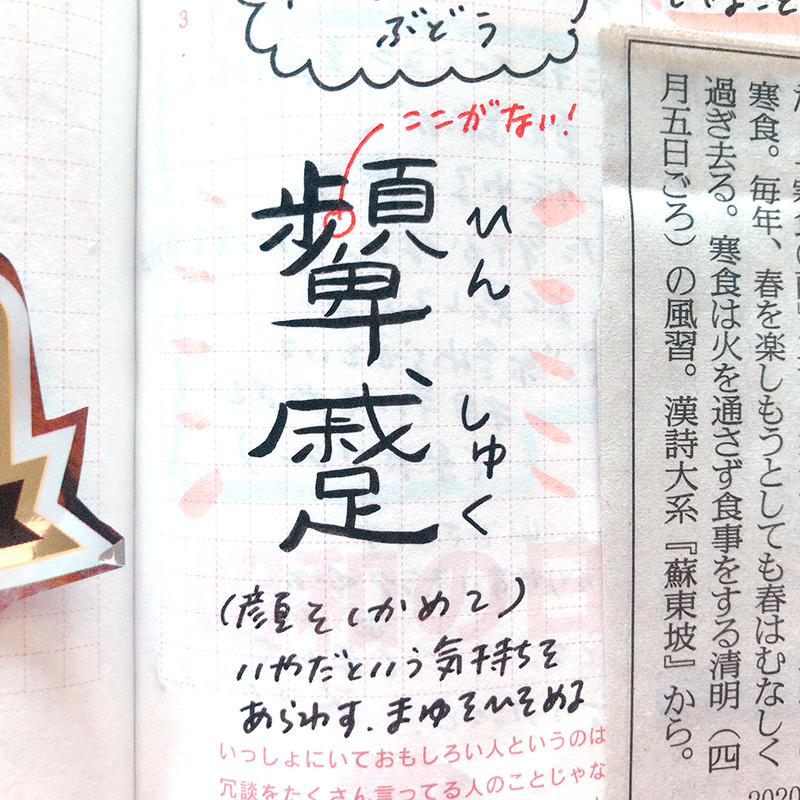 3
ぶどう
ここがない!
顰
ひん
蹙
しゅく
(顔をしかめて)
いやだという気持ちを
あらわす.まゆをひそめる
いっしょにいておもしろい人というのは
冗談をたくさん言ってる人のことじゃな
寒食。毎年、春を楽しもうとしても春はむなしく
過ぎ去る。寒食は火を通さず食事をする清明(四
月五日ごろ)の風習。漢詩大系『蘇東坡』から。
2020